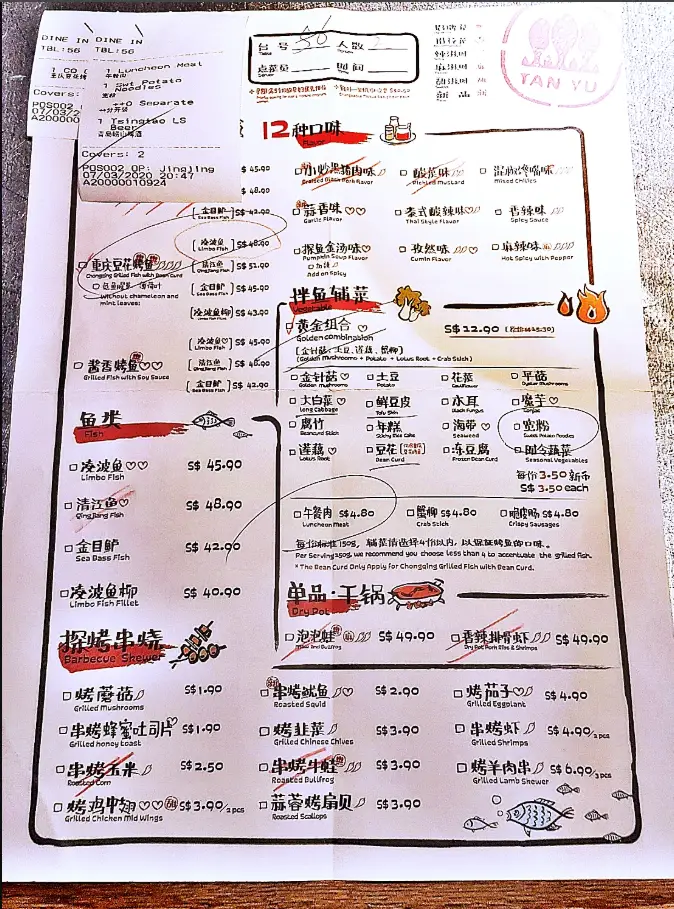 DINE IN DINE IN
TBL:56 TBL:56
1 Luncheon Meat
午餐肉
1 Swt Potato
Noodles
宽粉
++0 Separate
++分开装
1 Tsingtao LS
Beer
Covers:
Covers: 2
POS002
POS002 OP: jingjing
07/03/2020 20:47
A20000010924
台号 56 人数 2
点菜员 时间
TAN YU
12种口味
Flavor
小炒黑猪肉味
Braised Black Pork Flavor
酸菜味
Pickled Mustard
混椒馋嘴味
Mixed Chilies
蒜香味
Garlic Flavor
泰式酸辣味
Thai Style Flavor
香辣味
Spicy Sauce
探鱼金汤味
Pumpkin Soup Flavor
加辣
Add on Spicy
孜然味
Cumin Flavor
麻辣味
Hot Spicy with Pepper
S$ 45.90
S$ 48.90
[金目鲈 Sea Bass Fish] S$ 42.90
[凌波鱼 Limbo Fish] S$ 48.90
重庆豆花烤鱼
Chongqing Grilled Fish with Bean Curd
[清江鱼 QingJiang Fish] S$ 51.90
Without chameleon and
mint leaves;
[金目鲈 Sea Bass Fish] S$ 45.90
[凌波鱼柳 Limbo Fish Fillet] S$ 43.90
[凌波鱼 Limbo Fish] S$ 45.90
酱香烤鱼
Grilled Fish with Soy Sauce
[清江鱼 QingJiang Fish] S$ 48.90
[金目鲈 Sea Bass Fish] S$ 42.90
拌鱼辅菜
Vegetable
黄金组合
Golden combination
S$ 12.90
[金针菇、土豆、莲藕、蟹柳]
(Golden Mushrooms + Potato + Lotus Root + Crab Stick)
金针菇
Golden mushrooms
土豆
Potato
花菜
Cauliflower
平菇
Oyster Mushrooms
大白菜
Long Cabbage
鲜豆皮
Tofu Skin
木耳
Black Fungus
魔芋
Konjac
腐竹
Beancurd Stick
年糕
Sticky Rice Cake
海带
Seaweed
宽粉
Sweet Potato Noodles
莲藕
Lotus Root
豆花
Bean Curd
冻豆腐
Frozen Bean Curd
时令蔬菜
Seasonal Vegetables
每份 3.50 新币
S$ 3.50 each
午餐肉 S$4.80
Luncheon Meat
蟹柳 S$4.80
Crab Stick
脆皮肠 S$4.80
Crispy Sausages
每份标准150g, 辅菜请选择4份以内, 以保证烤鱼的口味。
Per Serving150g, we recommend you choose less than 4 to accentuate the grilled fish.
* The Bean Curd Only Apply for Chongqing Grilled Fish with Bean Curd.
鱼类
Fish
凌波鱼
Limbo Fish
S$ 45.90
清江鱼
QingJiang Fish
S$ 48.90
金目鲈
Sea Bass Fish
S$ 42.90
凌波鱼柳
Limbo Fish Fillet
S$ 40.90
单品·干锅
Dry Pot
泡泡蛙 S$ 49.90
香辣排骨虾 S$ 49.90
Dry Pot Pork Ribs & Shrimps
探烤串烧
Barbecue Skewer
烤蘑菇 S$1.90
Grilled Mushrooms
串烤鱿鱼 S$ 2.90
Roasted Squid
烤茄子 S$ 4.90
Grilled Eggplant
串烤蜂蜜吐司片 S$1.90
Grilled honey toast
烤韭菜 S$3.90
Grilled Chinese Chives
串烤虾 S$ 4.90/2pcs
Grilled Shrimps
串烤玉米 S$ 2.50
Roasted Corn
串烤牛蛙 S$3.90
Roasted Bullfrog
烤羊肉串 S$ 6.90/3pcs
Grilled Lamb Skewer
烤鸡中翅 S$ 3.90/2pcs
Grilled Chicken Mid Wings
蒜蓉烤扇贝 S$3.90
Roasted Scallops